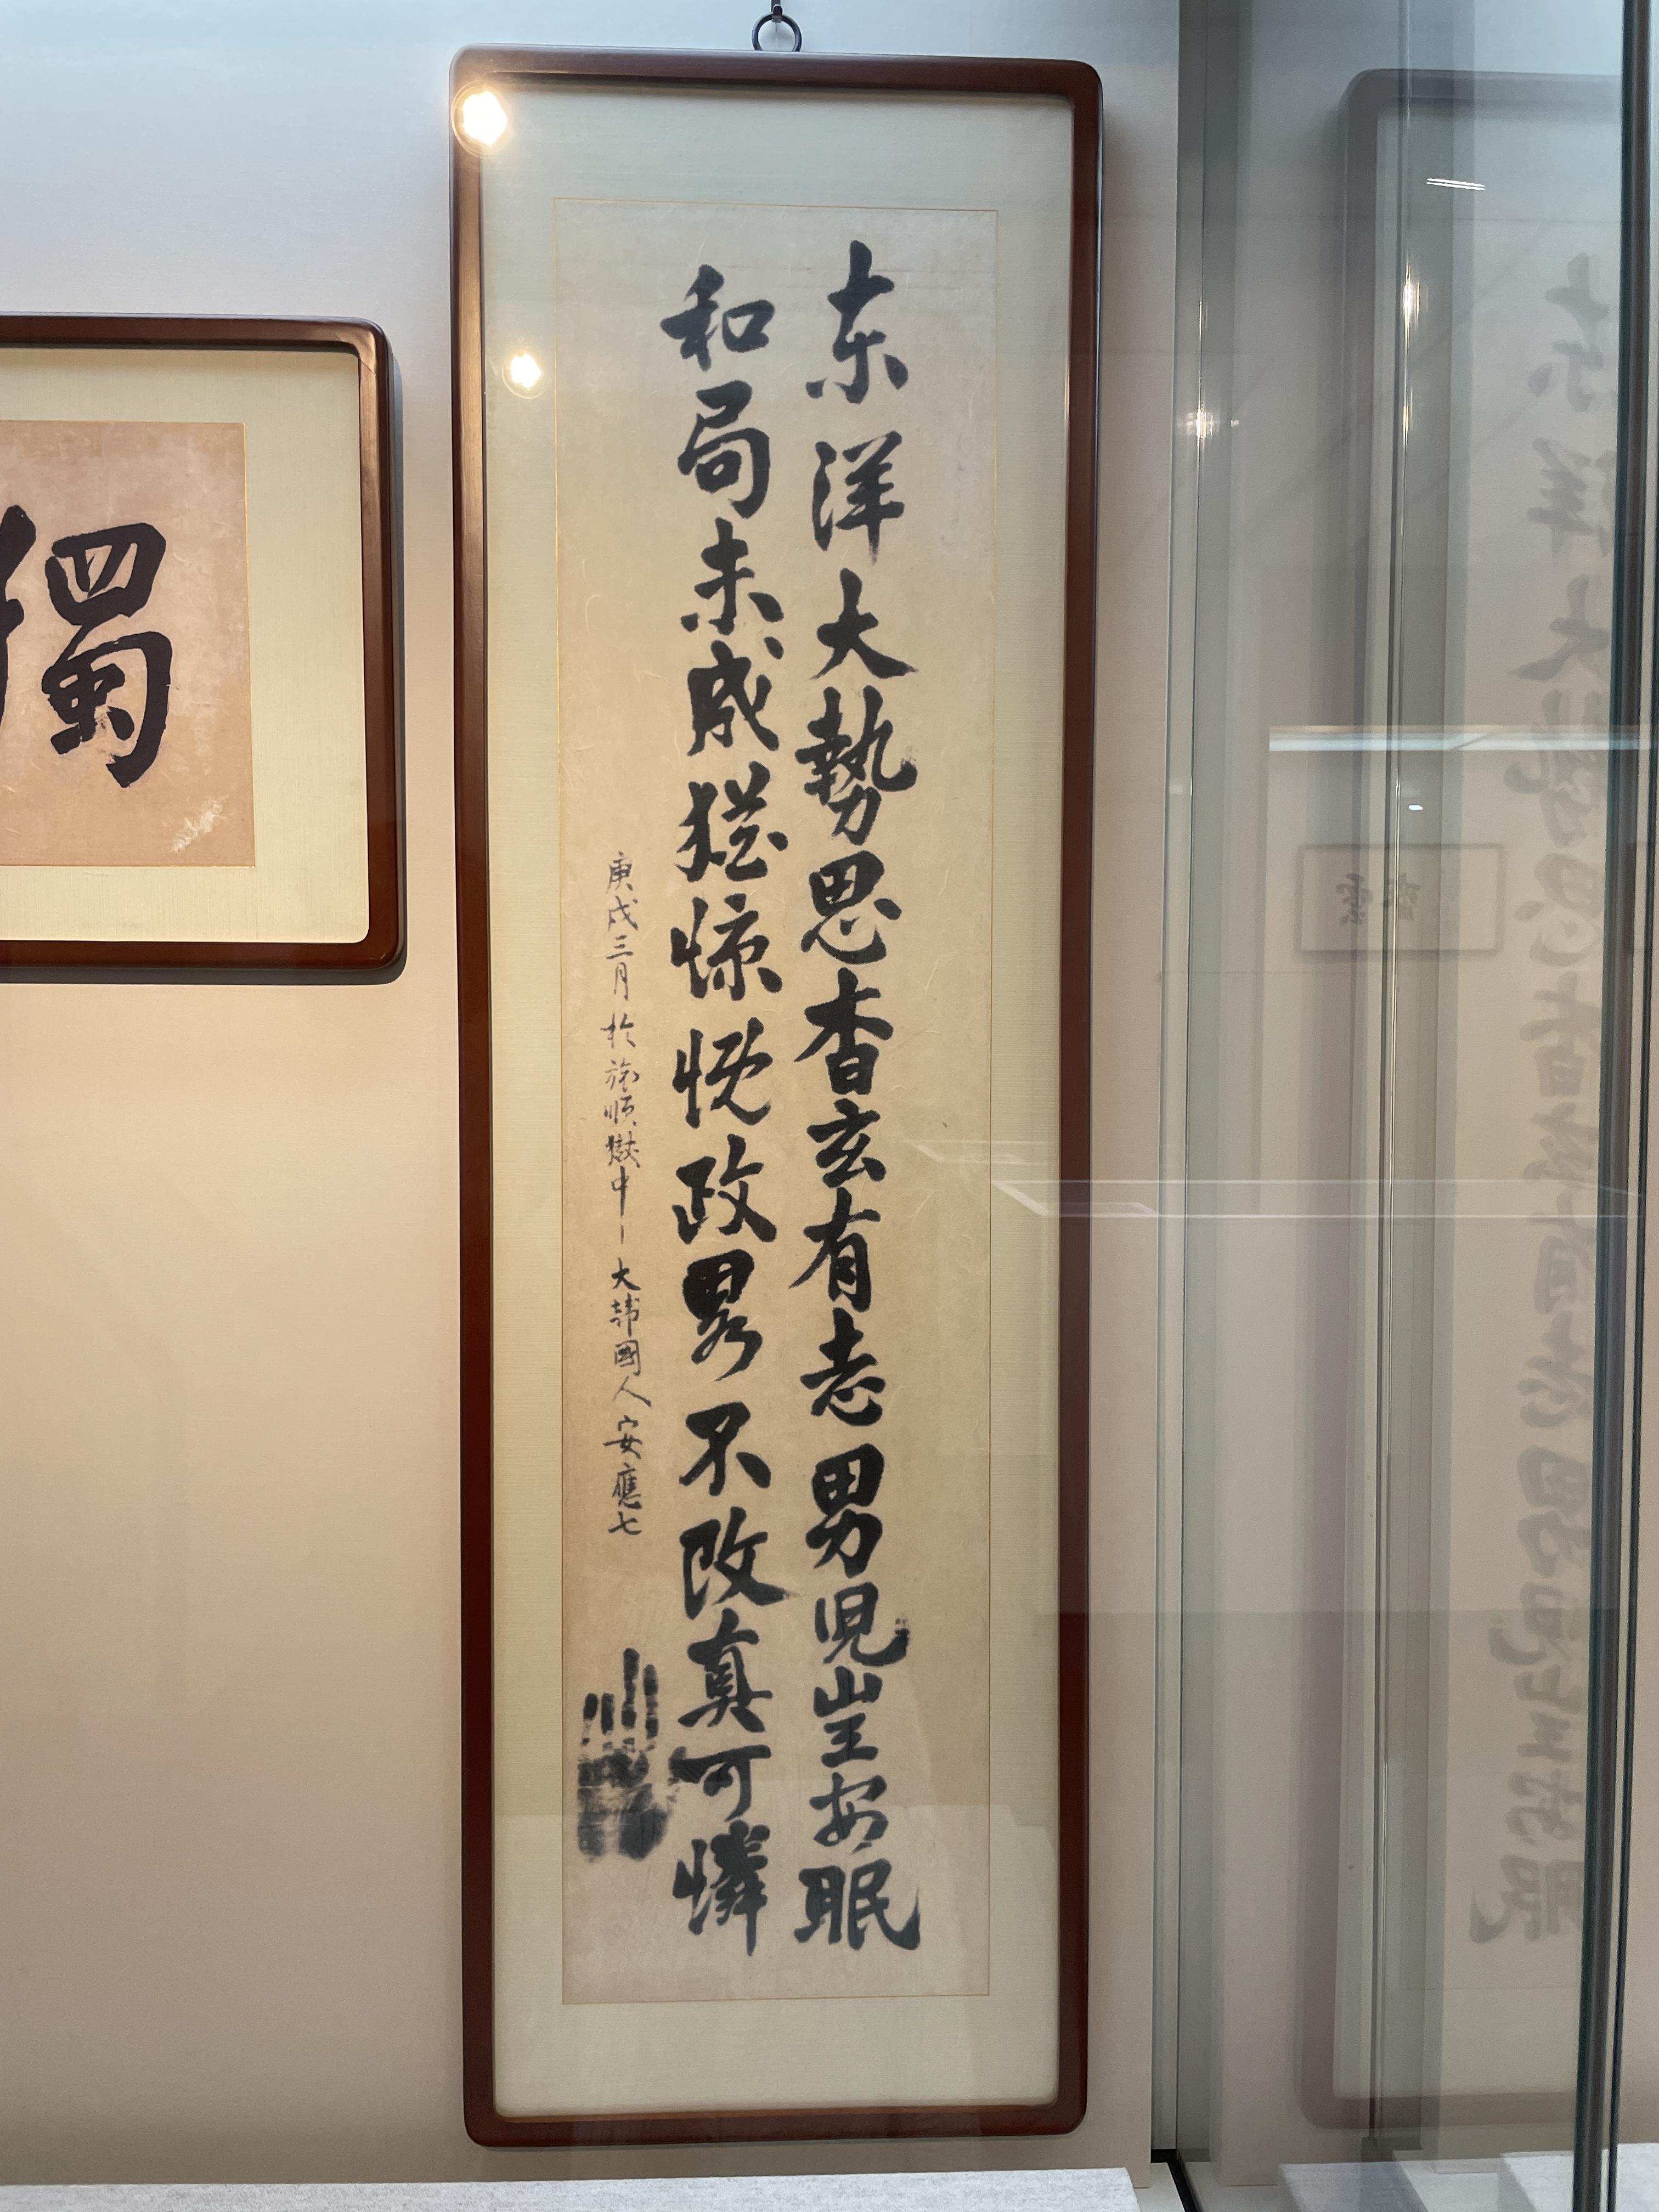 东洋大勢思杳玄有志男児豈安眠
和局未成猶慷慨政畧不改真可憐
庚戌三月於旅順獄中 大韓國人 安應七
獨